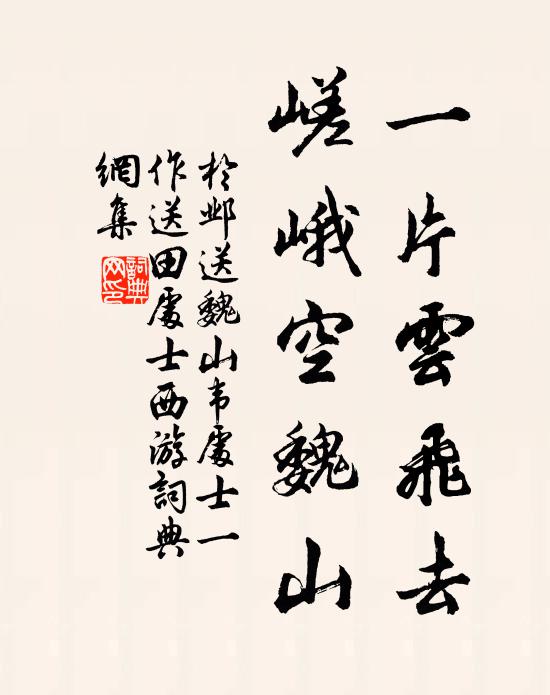 一片雲飛去
嵯峨空魏山
於邺送魏山韦處士一
作送田處士西游詞典
網集
詞典
网印